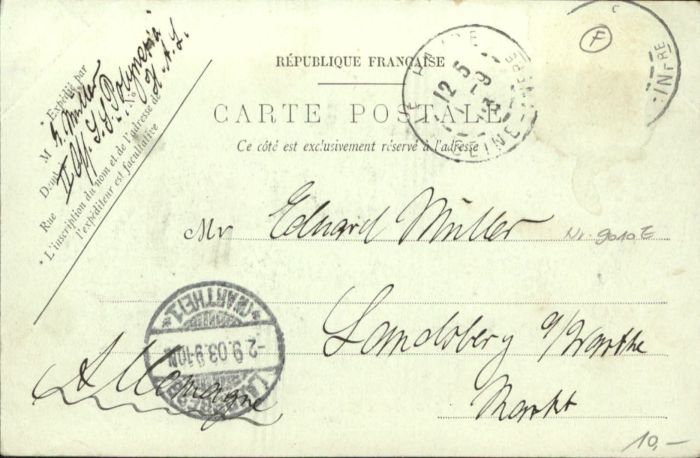 RÉPUBLIQUE FRANÇAISE
CARTE POSTALE
Ce côté est exclusivement réservé à l'adresse
* Expédié par
M. Müller
II Off. S.S. Polynesia
Rue N°
H. A. L.
* L'inscription du nom et de l'adresse de
l'expéditeur est facultative
LE HAVRE
12
SEINE-INFRE
F
INFRE
Mr Eduard Müller
Nr. 9010 E
Landsberg a/Warthe
Markt
Allemagne
* (WARTHE) 1 *
-2.9.03.9-10N
LANDSBERG
10,-